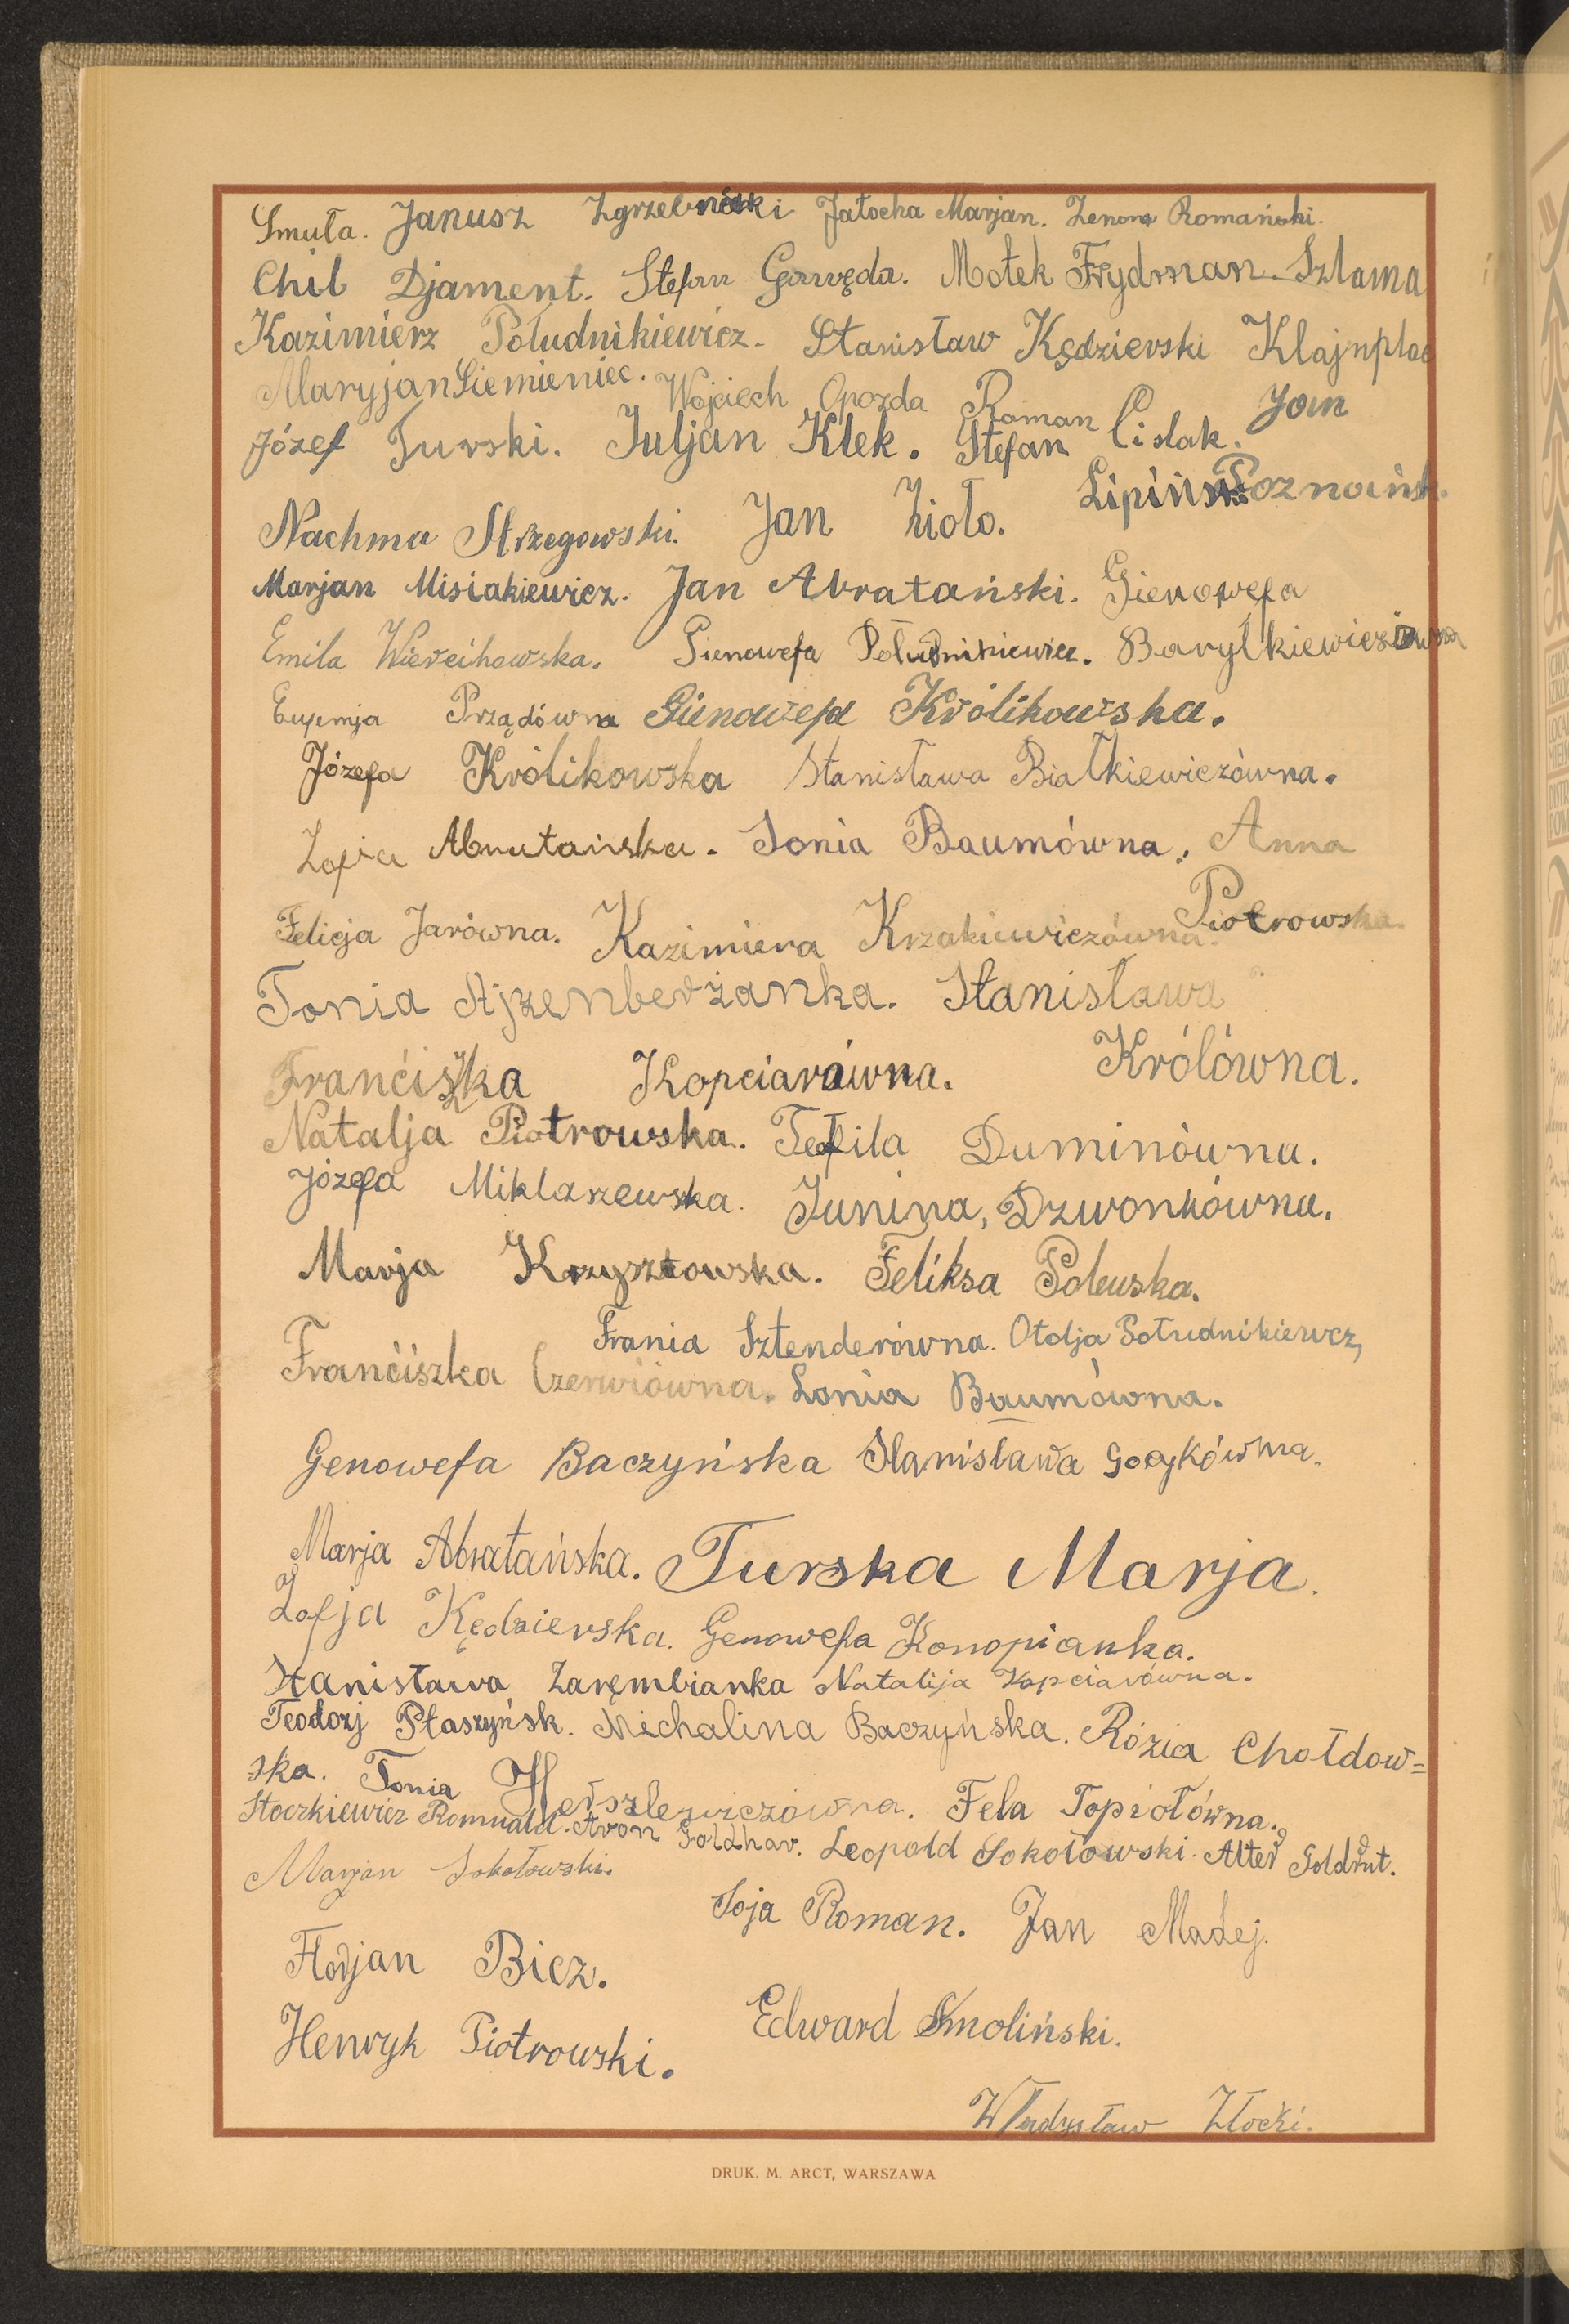 Smuła. Janusz Zgrzebnicki Jałocha Marjan. Zenon Romański.
Chil Djament. Stefan Gawęda. Motek Frydman. Szlama
Kazimierz Południkiewicz. Stanisław Kędzierski Klajnplac
Maryjan Siemieniec. Wojciech Opozda Roman Jan
Józef Turski. Juljan Klek. Stefan Cislak.
Nachma Strzegowski. Jan Zioło. Lipiński Poznańsk.
Marjan Misiakiewicz. Jan Abratański. Gienowefa
Emila Wiercihowska. Gienowefa Południkiewicz. Baryłkiewiczówna
Eufemja Prządówna Gienowefa Królikowska.
Józefa Królikowska Stanisława Białkiewiczówna.
Zofia Abratańska. Sonia Baumówna. Anna
Felicja Jarówna. Kazimiera Krzakiewiczówna. Piotrowska.
Tonia Ajzenberżanka. Stanisława
Franciszka Kopciarówna. Królówna.
Natalja Piotrowska. Teofila Duminówna.
Józefa Miklaszewska. Janina, Dzwonkówna.
Marja Krzysztowska. Feliksa Polewska.
Frania Sztenderówna. Otolja Południkiewcz,
Franciszka Czerwiówna. Sonia Baumówna.
Genowefa Baczyńska Stanisława Gocykówna.
Marja Abratańska. Turska Marja.
Zofja Kędzierska. Genowefa Konopianka.
Stanisława Zarembianka Natalija Kopciarówna.
Teodorj Płaszyńsk. Michalina Baczyńska. Rózia Chołdow=
ska. Tonia Herszlewiczówna. Fela Topiołówna.
Stoczkiewicz Romuald. Aron Goldhar. Leopold Sokołowski. Alter Goldrut.
Marjan Sokołowski.
Soja Roman. Jan Madej.
Florjan Bicz.
Edward Smoliński.
Henryk Piotrowski.
Władysław Złocki.
DRUK. M. ARCT, WARSZAWA